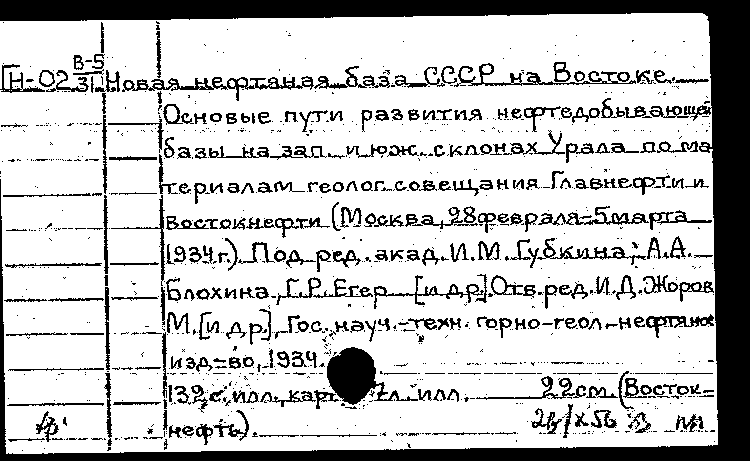 Н-02 В-5/31 Новая нефтаная база СССР на Востоке.
Основые пути развития нефтедобывающей
базы на зап. и юж. склонах Урала по ма
териалам геолог. совещания Главнефти и
Востокнефти (Москва, 28 февраля-5 марта
1934 г.) Под ред. акад. И.М. Губкина; А.А.
Блохина, Г.Р. Егер [и др]. Отв. ред. И.Д. Жоров
М. [и др], Гос. науч.-техн. горно-геол.-нефтяное
изд-во, 1934.
132 с., илл., карт 7 л. илл. 22 см. (Восток-
нефть).